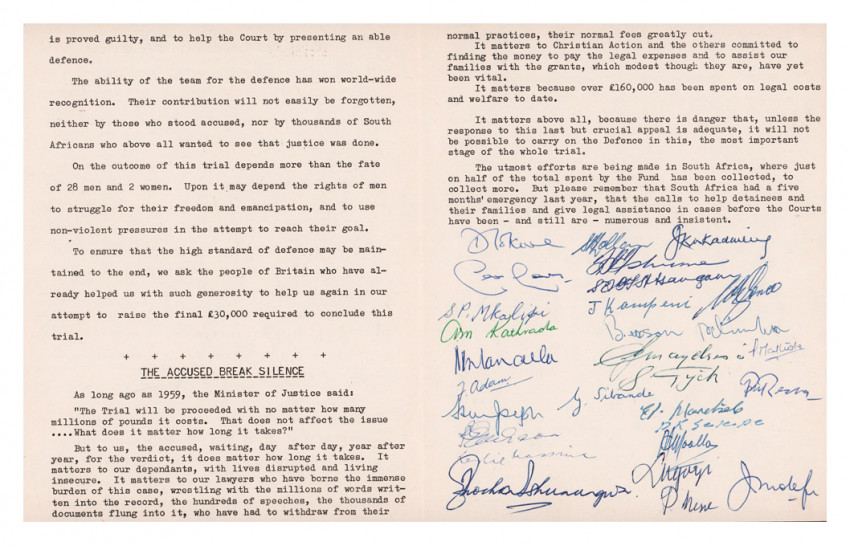 is proved guilty, and to help the Court by presenting an able
defence.
The ability of the team for the defence has won world-wide
recognition. Their contribution will not easily be forgotten,
neither by those who stood accused, nor by thousands of South
Africans who above all wanted to see that justice was done.
On the outcome of this trial depends more than the fate
of 28 men and 2 women. Upon it may depend the rights of men
to struggle for their freedom and emancipation, and to use
non-violent pressures in the attempt to reach their goal.
To ensure that the high standard of defence may be main-
tained to the end, we ask the people of Britain who have al-
ready helped us with such generosity to help us again in our
attempt to raise the final £30,000 required to conclude this
trial.
+ + + + + + + +
THE ACCUSED BREAK SILENCE
As long ago as 1959, the Minister of Justice said:
"The Trial will be proceeded with no matter how many
millions of pounds it costs. That does not affect the issue
....What does it matter how long it takes?"
But to us, the accused, waiting, day after day, year after
year, for the verdict, it does matter how long it takes. It
matters to our dependants, with lives disrupted and living
insecure. It matters to our lawyers who have borne the immense
burden of this case, wrestling with the millions of words writ-
ten into the record, the hundreds of speeches, the thousands of
documents flung into it, who have had to withdraw from their
normal practices, their normal fees greatly cut.
It matters to Christian Action and the others committed to
finding the money to pay the legal expenses and to assist our
families with the grants, which modest though they are, have yet
been vital.
It matters because over £160,000 has been spent on legal costs
and welfare to date.
It matters above all, because there is danger that, unless the
response to this last but crucial appeal is adequate, it will not
be possible to carry on the Defence in this, the most important
stage of the whole trial.
The utmost efforts are being made in South Africa, where just
on half of the total spent by the Fund has been collected, to
collect more. But please remember that South Africa had a five
months' emergency last year, that the calls to help detainees and
their families and give legal assistance in cases before the Courts
have been - and still are - numerous and insistent.
S P. Mkalipi
J Kampeni
Am Kathrada
NMandela
J. Adams
S. Tyeki
G. Sibande
P Nene